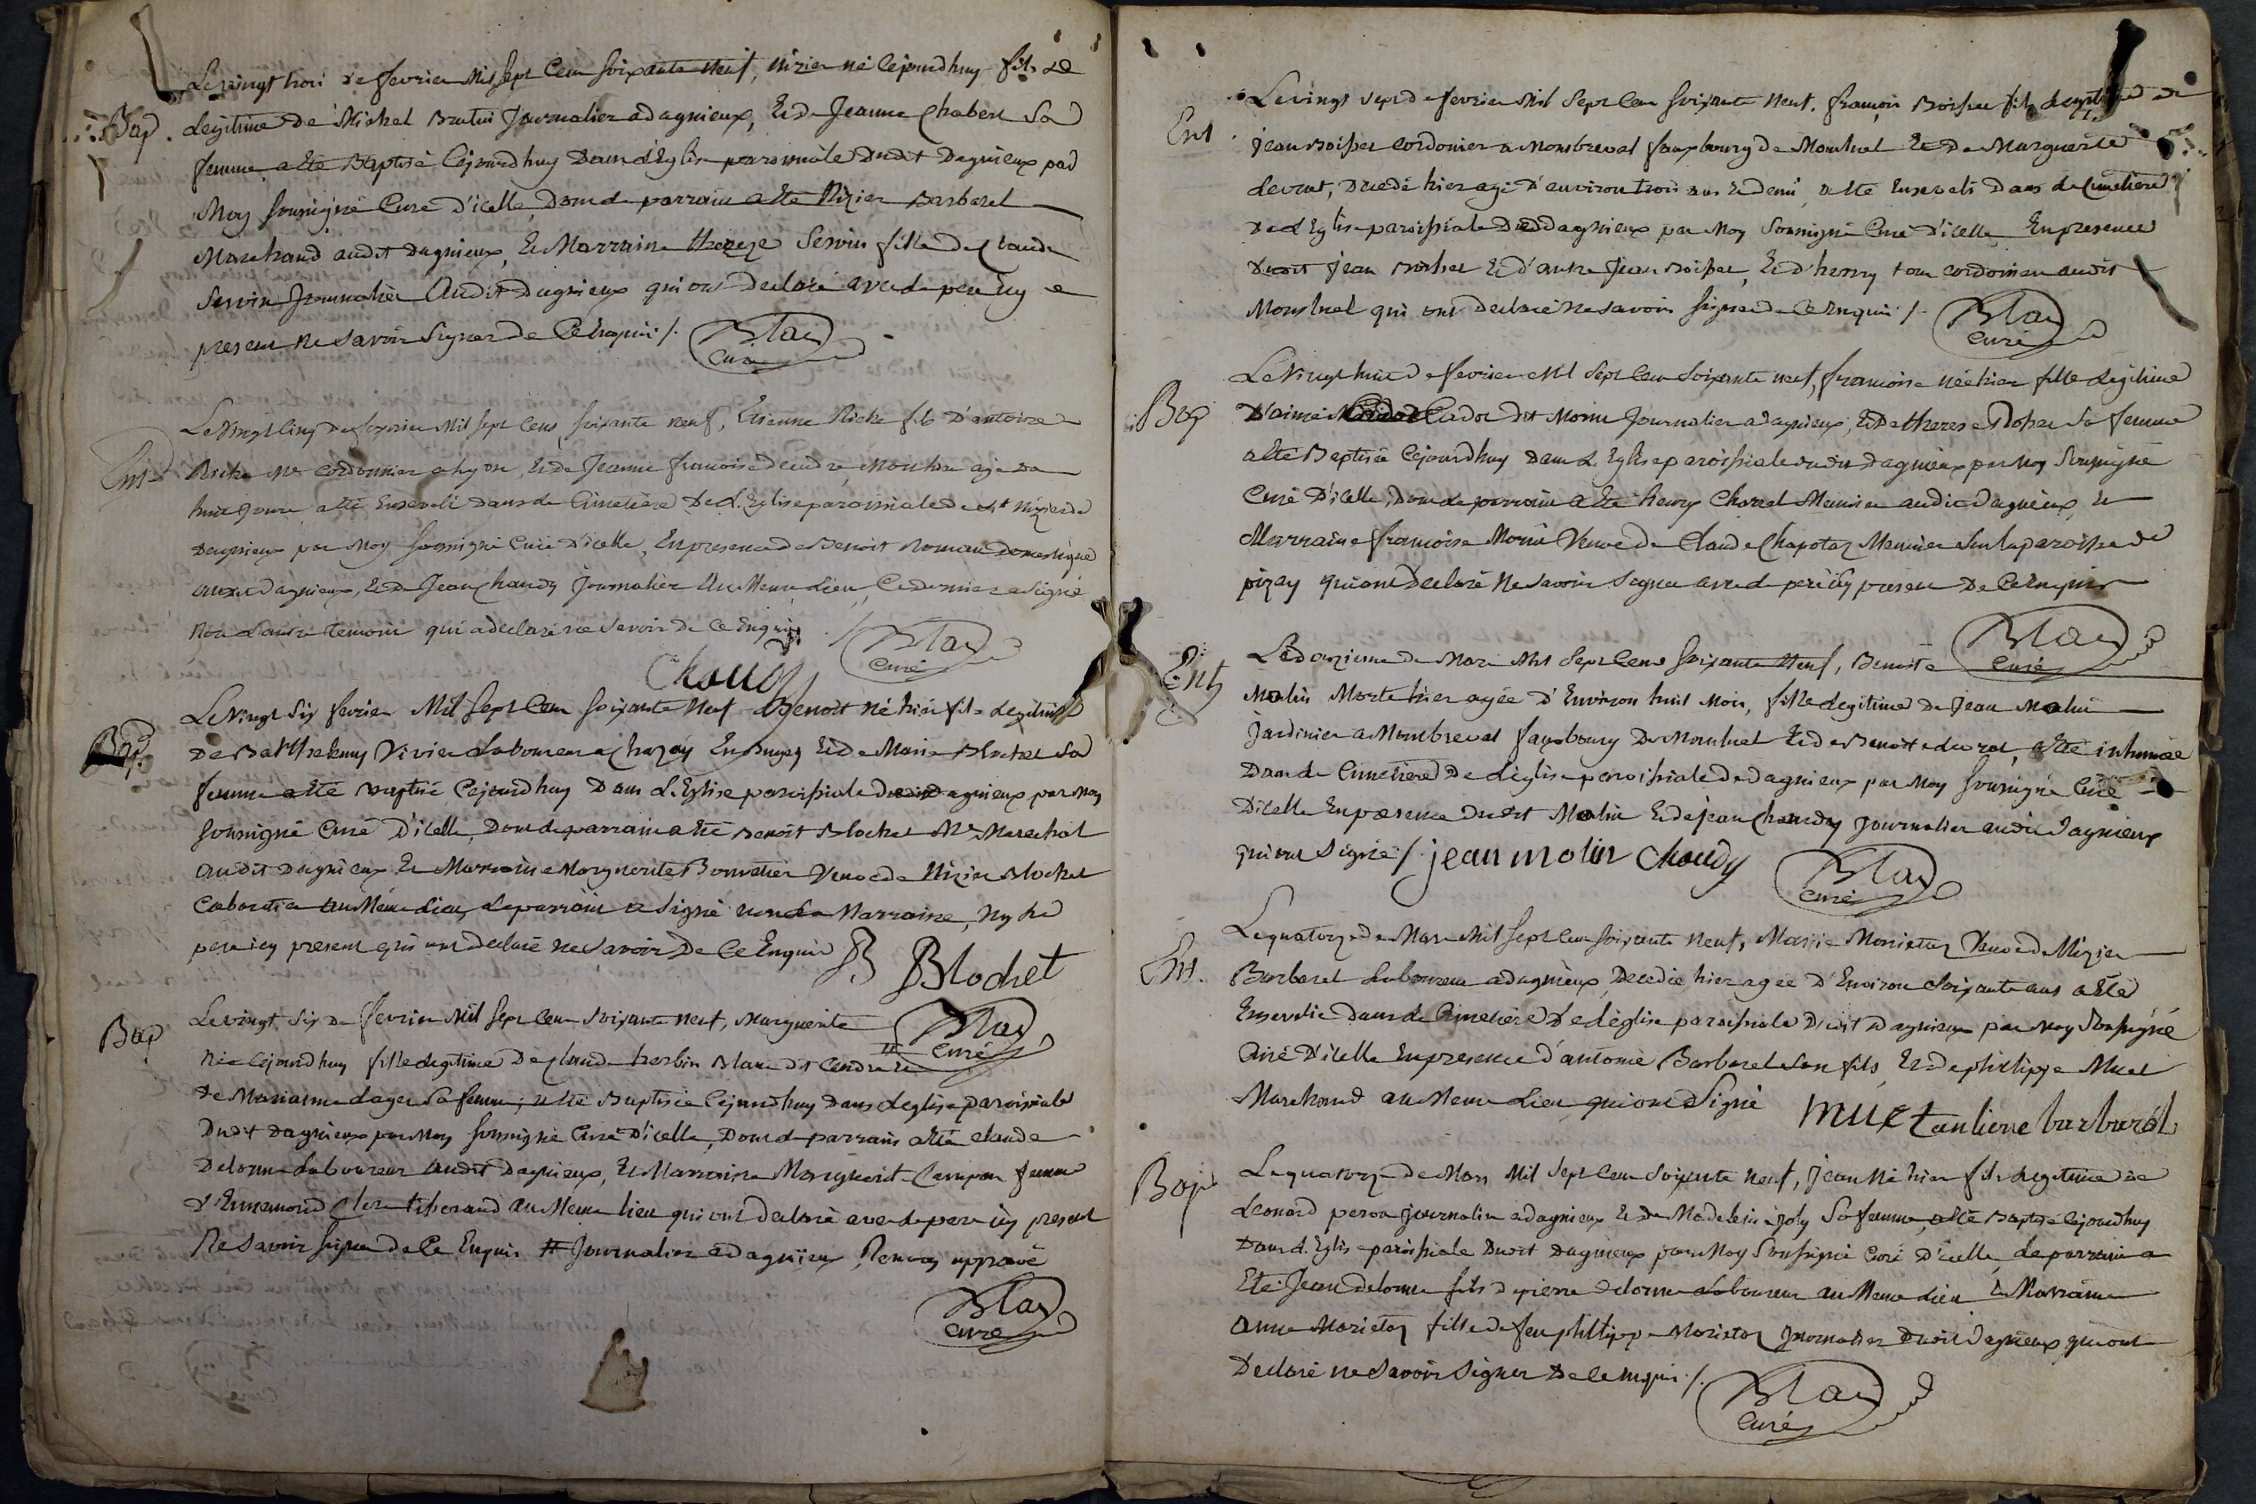 Le vingt trois de fevrier Mil sept Cent soixante Neuf, Nizier né Cejourdhuy fils Le
Bap. Legitime De Michel Journalier a dagnieux, Et de Jeanne Chabert Sa
femme a Eté Baptisé Cejourdhuy Dans L'Eglise paroissiale Dudit Dagnieux par
Moy soussigné Curé D'icelle, Dont Le parrain a Eté Nizier Barbaret
Marchand audit Dagnieux, Et Marraine thereze Servin fille de Claude
Servin Journalier Audit Dagnieux qui ont Declaré avec Le pere icy
present Ne Savoir Signer De Ce Enquis /. Blay
Curé
Le Vingt Cinq De fevrier Mil sept Cens soixante neuf, Etienne fils D'antoine
Ent Me Cordonnier a lyon, Et de Jeanne francoise agé De
huit Jours a Eté Enseveli Dans Le Cimetière De L'Eglise paroissiale de st Nizier de
Dagnieux par Moy soussigné Curé D'icelle, En presence de Benoit Roman Domestique
audit Dagnieux, Et de Jean Chaudy Journalier Au Meme Lieu, Ce dernier a Signé
Non L'autre temoin qui a declaré ne Savoir De Ce Enquis /. Blay
Chaudy Curé
Le Vingt Six fevrier Mil sept Cent soixante Neuf Benoit Né hier fils Legitime
Bap De Barthelemy Vivier Laboureur a Chazey En Bugey Et de Marie Blochet Sa
femme a Eté baptisé Cejourdhuy Dans L'Eglise paroissiale Dudit Dagnieux par Moy
soussigné Curé D'icelle, Dont Le parrain a Eté Benoit Blochet Me Marechal
audit Dagnieux Et Marraine Marguerite Bouvetier Veuve de Nizier Blochet
Cabaretier Au Méme Lieu, Le parrain a Signé non La Marraine, Ny Le
pere icy present qui ont declaré ne Savoir De Ce Enquis B Blochet
Bap Le vingt Six De fevrier Mil sept Cent Soixante Neuf, Marguerite Blay
Curé
Née Cejourdhuy fille Legitime De Claude herbin Blanc dit Cendre # Et
De Marianne Loger Sa femme, a Eté Baptisée Cejourdhuy Dans L'eglise paroissiale
Dudit Dagnieux par Moy soussigné Curé D'icelle, Dont Le parrain a Eté Claude
Delorme Laboureur audit Dagnieux, Et Marraine Marguerite femme
D'Ennemond tisserand Au Meme lieu qui ont Declaré avec Le pere icy present
Ne Savoir Signer De Ce Enquis # Journalier a Dagnieux, Renvoy approuvé
Blay
Curé
Le vingt Sept De fevrier Mil Sept Cent Soixante Neuf. françois Boisset fils Legitime De
Ent. Jean Boisset Cordonier a Montbreval fauxbourg De Montluel Et De Marguerite
Levrat, Decedé hier agé D'environ trois ans Et demi, a Eté Enseveli Dans Le Cimetière
De L'Eglise paroissiale Dudit Dagnieux par Moy Soussigné Curé D'icelle En presence
Dudit Jean Boisset Et D'autre Jean Boisset, Et D'henry cordonier audit
Montluel qui ont Declaré Ne Savoir Signer De Ce Enquis /. Blay
Curé
Le Vingt huit De fevrier Mil Sept Cent Soixante neuf, francoise née hier fille Legitime
Bap D'aimé Cadot dit Morin Journalier a Dagnieux, Et De therese Sa femme
a Eté Baptisée Cejourdhuy Dans L'Eglise paroissiale dudit Dagnieux par Moy Soussigné
Curé D'icelle, Dont Le parrain a Eté henry Charvet Meunier audit Dagnieux, Et
Marraine francoise Morin Veuve De Claude Chapotat Meunier Sur la paroisse De
pizay qui ont Declaré Ne Savoir Signer avec Le pere icy present De Ce Enquis
Blay
Ent Le douzieme De Mars Mil Sept Cens soixante Neuf, Benoite Curé
Molin Morte hier agée D'Environ huit Mois, fille Legitime De Jean Molin
Jardinier a Montbreval fauxbourg De Montluel Et de Benoite a Eté inhumée
Dans Le Cimetiere De L'eglise paroissiale De Dagnieux par Moy soussigné Curé
D'icelle En presence Dudit Molin Et de jean Chaudy Journalier audit Dagnieux
qui ont Signé /. jean molin Chaudy Blay
Curé
Le quatorze De Mars Mil sept Cent soixante neuf, Marie Morietton Veuve de Nizier
Ent. Barbaret Laboureur a dagnieux, Decedée hier agée D'Environ Soixante ans a Eté
Ensevelie Dans Le Cimetiere De L'église paroissiale Dudit Dagnieux par Moy Soussigné
Curé D'icelle En presence d'antoine Barbaret Son fils, Et de philippe Muet
Marchand au Meme Lieu qui ont Signé muet antiene barbarét
Bap Le quatorze De Mars Mil Sept Cent Soixante Neuf, Jean Né hier fils Legitime De
Leonard peron journalier a dagnieux Et De Madeleine joly Sa femme, a Eté Baptisé Cejourdhuy
Dans L'Eglise paroissiale Dudit Dagnieux par Moy Soussigné Curé D'icelle Le parrain a
Eté Jean Delorme fils De pierre Delorme Laboureur au Meme Lieu Et Marraine
anne Morietton fille De feu philippe Morietton Journalier Dudit Dagnieux qui ont
Declaré ne Savoir Signer De Ce Enquis /. Blay
Curé